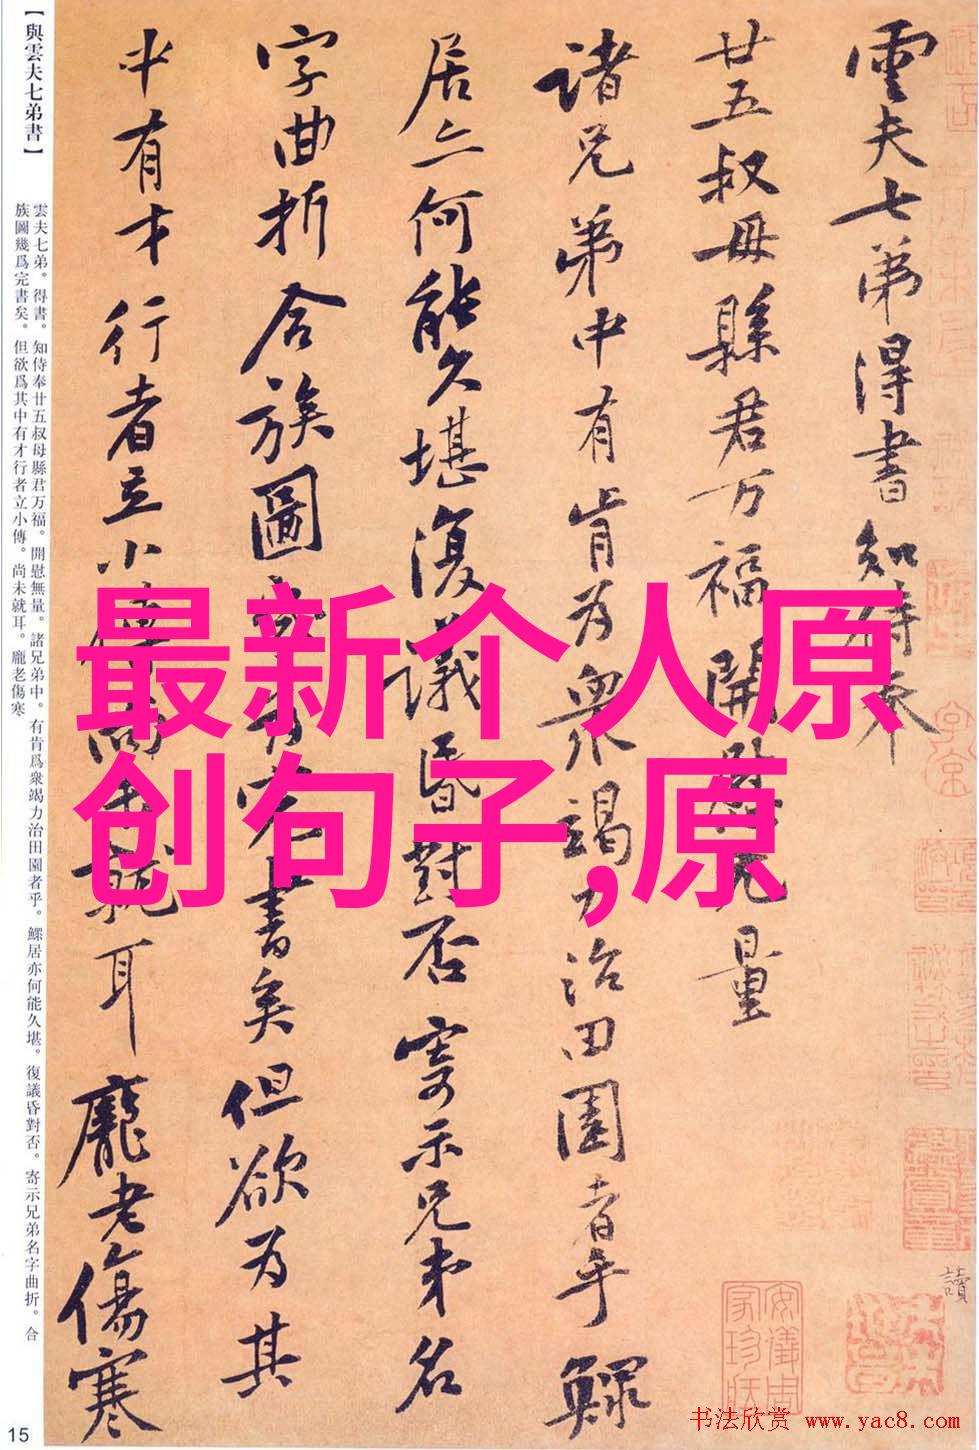 雲夫七弟得書知侍奉
廿五叔母縣君万福開慰无量
諸兄弟中有肯为衆竭力治田園者乎鰥
居亦何能久堪復議昏對否寄示兄弟名
字曲折合族圖幾为完書矣但欲为其
中有才行者立小傳尚未就耳龐老傷寒
【與雲夫七弟書】
雲夫七弟。得書。知侍奉廿五叔母縣君万福。開慰無量。諸兄弟中。有肯爲衆竭力治田園者乎。鰥居亦何能久堪。復議昏對否。寄示兄弟名字曲折。合
族圖幾爲完書矣。但欲爲其中有才行者立小傳。尚未就耳。龐老傷寒
15
最新个人原
创句子,原
讀
安儀周
家珍藏
书法欣赏 www.yac8.com